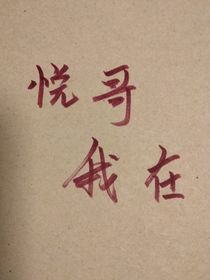 悦哥
我在